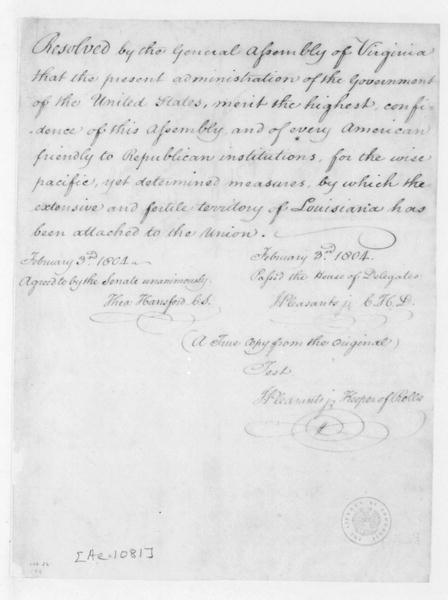 Resolved by the General Assembly of Virginia
that the present administration of the Government
of the United States, merit the highest, confi-
dence of this Assembly, and of every American
friendly to Republican institutions, for the wise
pacific, yet determined measures, by which the
extensive and fertile territory of Louisiana has
been attached to the Union.
February 3rd 1804
Agreed to by the Senate unanimously.
Theo Hansford. C.S.
February 3rd 1804.
Pass'd the House of Delegates
J Pleasants jr C. H. D.
(A True Copy from the Original)
Test
J Pleasants jr Keeper of Rolls
[Ac. 1081]
THE LIBRARY OF CONGRESS